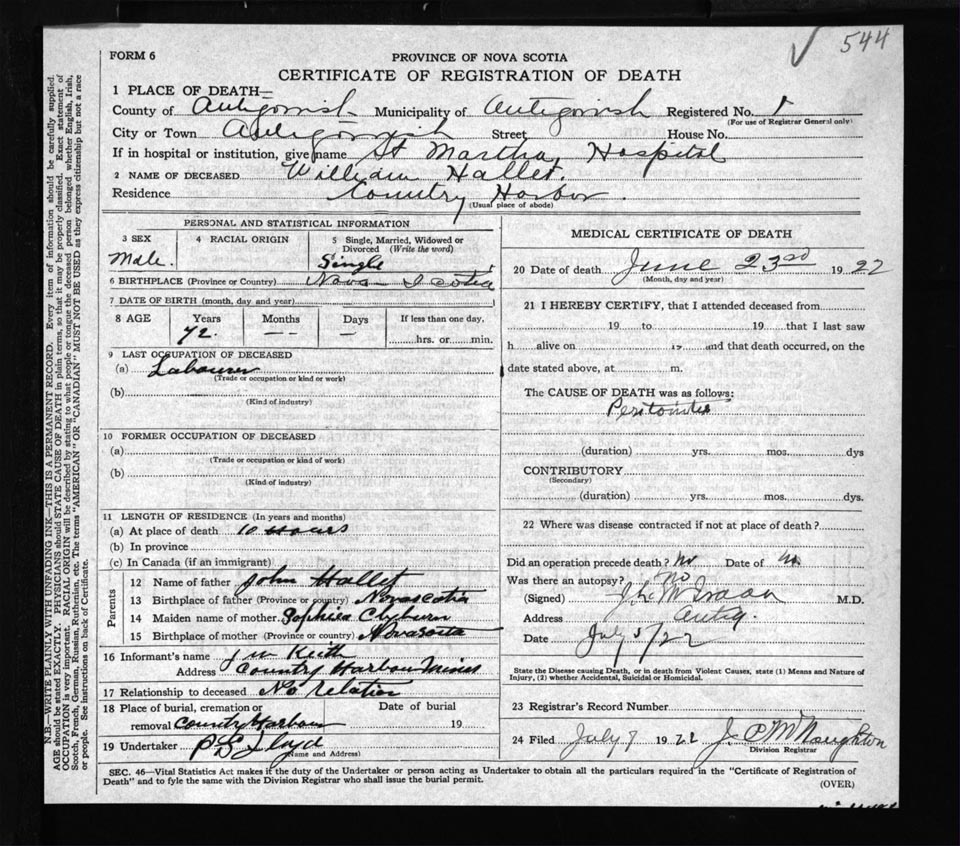 ✓ 544
FORM 6
PROVINCE OF NOVA SCOTIA
CERTIFICATE OF REGISTRATION OF DEATH
1 PLACE OF DEATH—
County of Antigonish Municipality of Antigonish Registered No. 1
(For use of Registrar General only)
City or Town Antigonish Street House No.
If in hospital or institution, give name St Martha Hospital
2 NAME OF DECEASED William Hallet.
Residence Country Harbor.
(Usual place of abode)
PERSONAL AND STATISTICAL INFORMATION
3 SEX 4 RACIAL ORIGIN 5 Single, Married, Widowed or
Divorced (Write the word)
Male. Single
6 BIRTHPLACE (Province or Country) Nova Scotia
7 DATE OF BIRTH (month, day and year)
8 AGE Years Months Days If less than one day,
72. -- — hrs. or min.
9 LAST OCCUPATION OF DECEASED
(a) Labourer
(Trade or occupation or kind or work)
(b)
(Kind of industry)
10 FORMER OCCUPATION OF DECEASED
(a)
(Trade or occupation or kind of work)
(b)
(Kind of industry)
11 LENGTH OF RESIDENCE (In years and months)
(a) At place of death 10 Hours
(b) In province
(c) In Canada (if an immigrant)
Parents
12 Name of father John Hallet
13 Birthplace of father (Province or country) Novascotia
14 Maiden name of mother Sophiea Clyburn
15 Birthplace of mother (Province or country) Novascota
16 Informant's name J W Keith
Address Country Harbour Mines
17 Relationship to deceased No relation
18 Place of burial, cremation or Date of burial
removal Country Harbour 19
19 Undertaker P S Lloyd
(Name and Address)
MEDICAL CERTIFICATE OF DEATH
20 Date of death June 23rd 1922
(Month, day and year)
21 I HEREBY CERTIFY, that I attended deceased from
19 to 19 that I last saw
h alive on 19 and that death occurred, on the
date stated above, at m.
The CAUSE OF DEATH was as follows:
Peritonites
(duration) yrs. mos. dys
CONTRIBUTORY
(Secondary)
(duration) yrs. mos. dys.
22 Where was disease contracted if not at place of death?
Did an operation precede death? No Date of no.
Was there an autopsy? No
(Signed) M.D.
Address Antig.
Date July 5/22
State the Disease causing Death, or in death from Violent Causes, state (1) Means and Nature of
Injury, (2) whether Accidental, Suicidal or Homicidal.
23 Registrar's Record Number
24 Filed July 7 1922 J. C McNaughton
Division Registrar
SEC. 46—Vital Statistics Act makes it the duty of the Undertaker or person acting as Undertaker to obtain all the particulars required in the "Certificate of Registration of
Death" and to fyle the same with the Division Registrar who shall issue the burial permit.
(OVER)
N.B.—WRITE PLAINLY WITH UNFADING INK—THIS IS A PERMANENT RECORD. Every item of information should be carefully supplied.
AGE should be stated EXACTLY. PHYSICIANS should STATE CAUSE OF DEATH in plain terms, so that it may be properly classified. Exact statement of
OCCUPATION is very important. RACIAL ORIGIN will be described by stating to what people or tongue the deceased person belonged whether English, Irish,
Scotch, French, German, Russian, Ruthenian, etc. The terms "AMERICAN" OR "CANADIAN" MUST NOT BE USED as they express citizenship but not a race
or people. See instructions on back of Certificate.